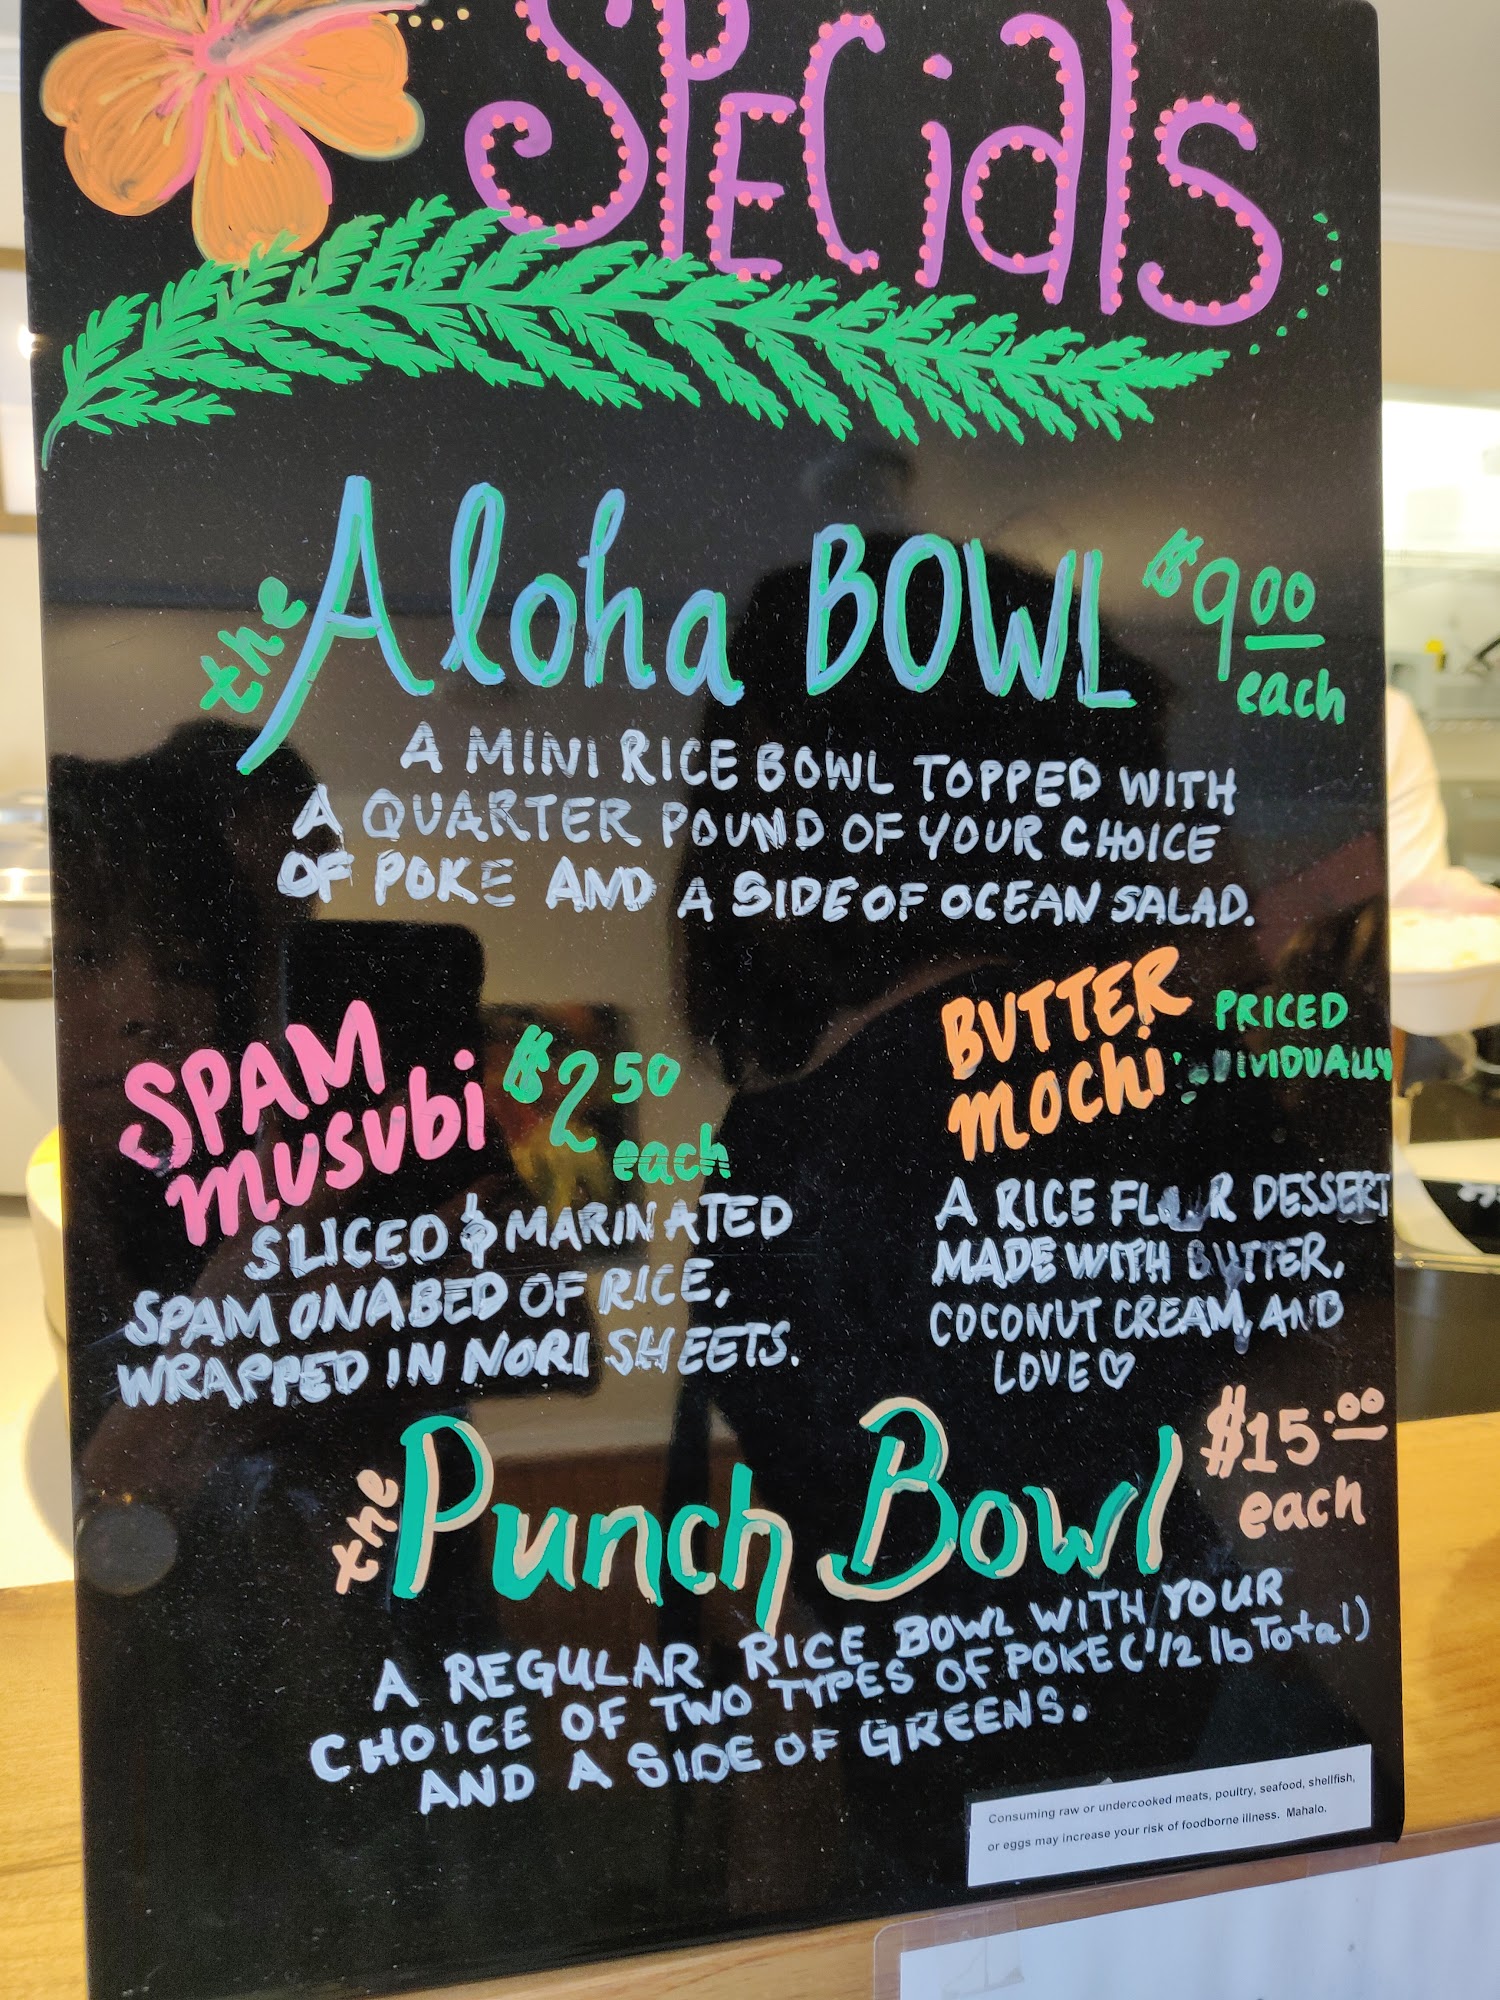 SPECials
the Aloha BOWL $9.00
each
A MINI RICE BOWL TOPPED WITH
A QUARTER POUND OF YOUR CHOICE
OF POKE AND A SIDE OF OCEAN SALAD.
SPAM
musubi $2.50
each
SLICED & MARINATED
SPAM ON A BED OF RICE,
WRAPPED IN NORI SHEETS.
BUTTER
mochi
PRICED
A RICE DESSERT
MADE WITH BUTTER,
COCONUT CREAM, AND
LOVE ♡
the Punch Bowl $15.00
each
A REGULAR RICE BOWL WITH YOUR
CHOICE OF TWO TYPES OF POKE (1/2 lb Total)
AND A SIDE OF GREENS.
Consuming raw or undercooked meats, poultry, seafood, shellfish,
or eggs may increase your risk of foodborne illness. Mahalo.